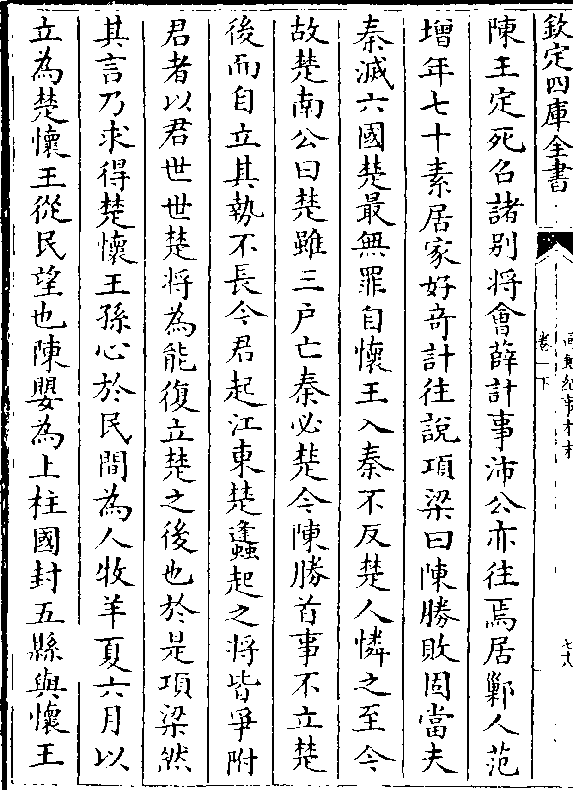 欽定四庫全書
卷一下
陳王定死召諸别將會薛計事沛公亦往焉居鄛人范
增年七十素居家好奇計往說項梁曰陳勝敗固當夫
秦滅六國楚最無罪自懷王入秦不反楚人憐之至今
故楚南公曰楚雖三户亡秦必楚今陳勝首事不立楚
後而自立其執不長今君起江東楚蠭起之將皆爭附
君者以君世世楚将為能復立楚之後也於是項梁然
其言乃求得楚懷王孫心於民間為人牧羊夏六月以
立為楚懷王從民望也陳嬰為上柱國封五縣與懷王